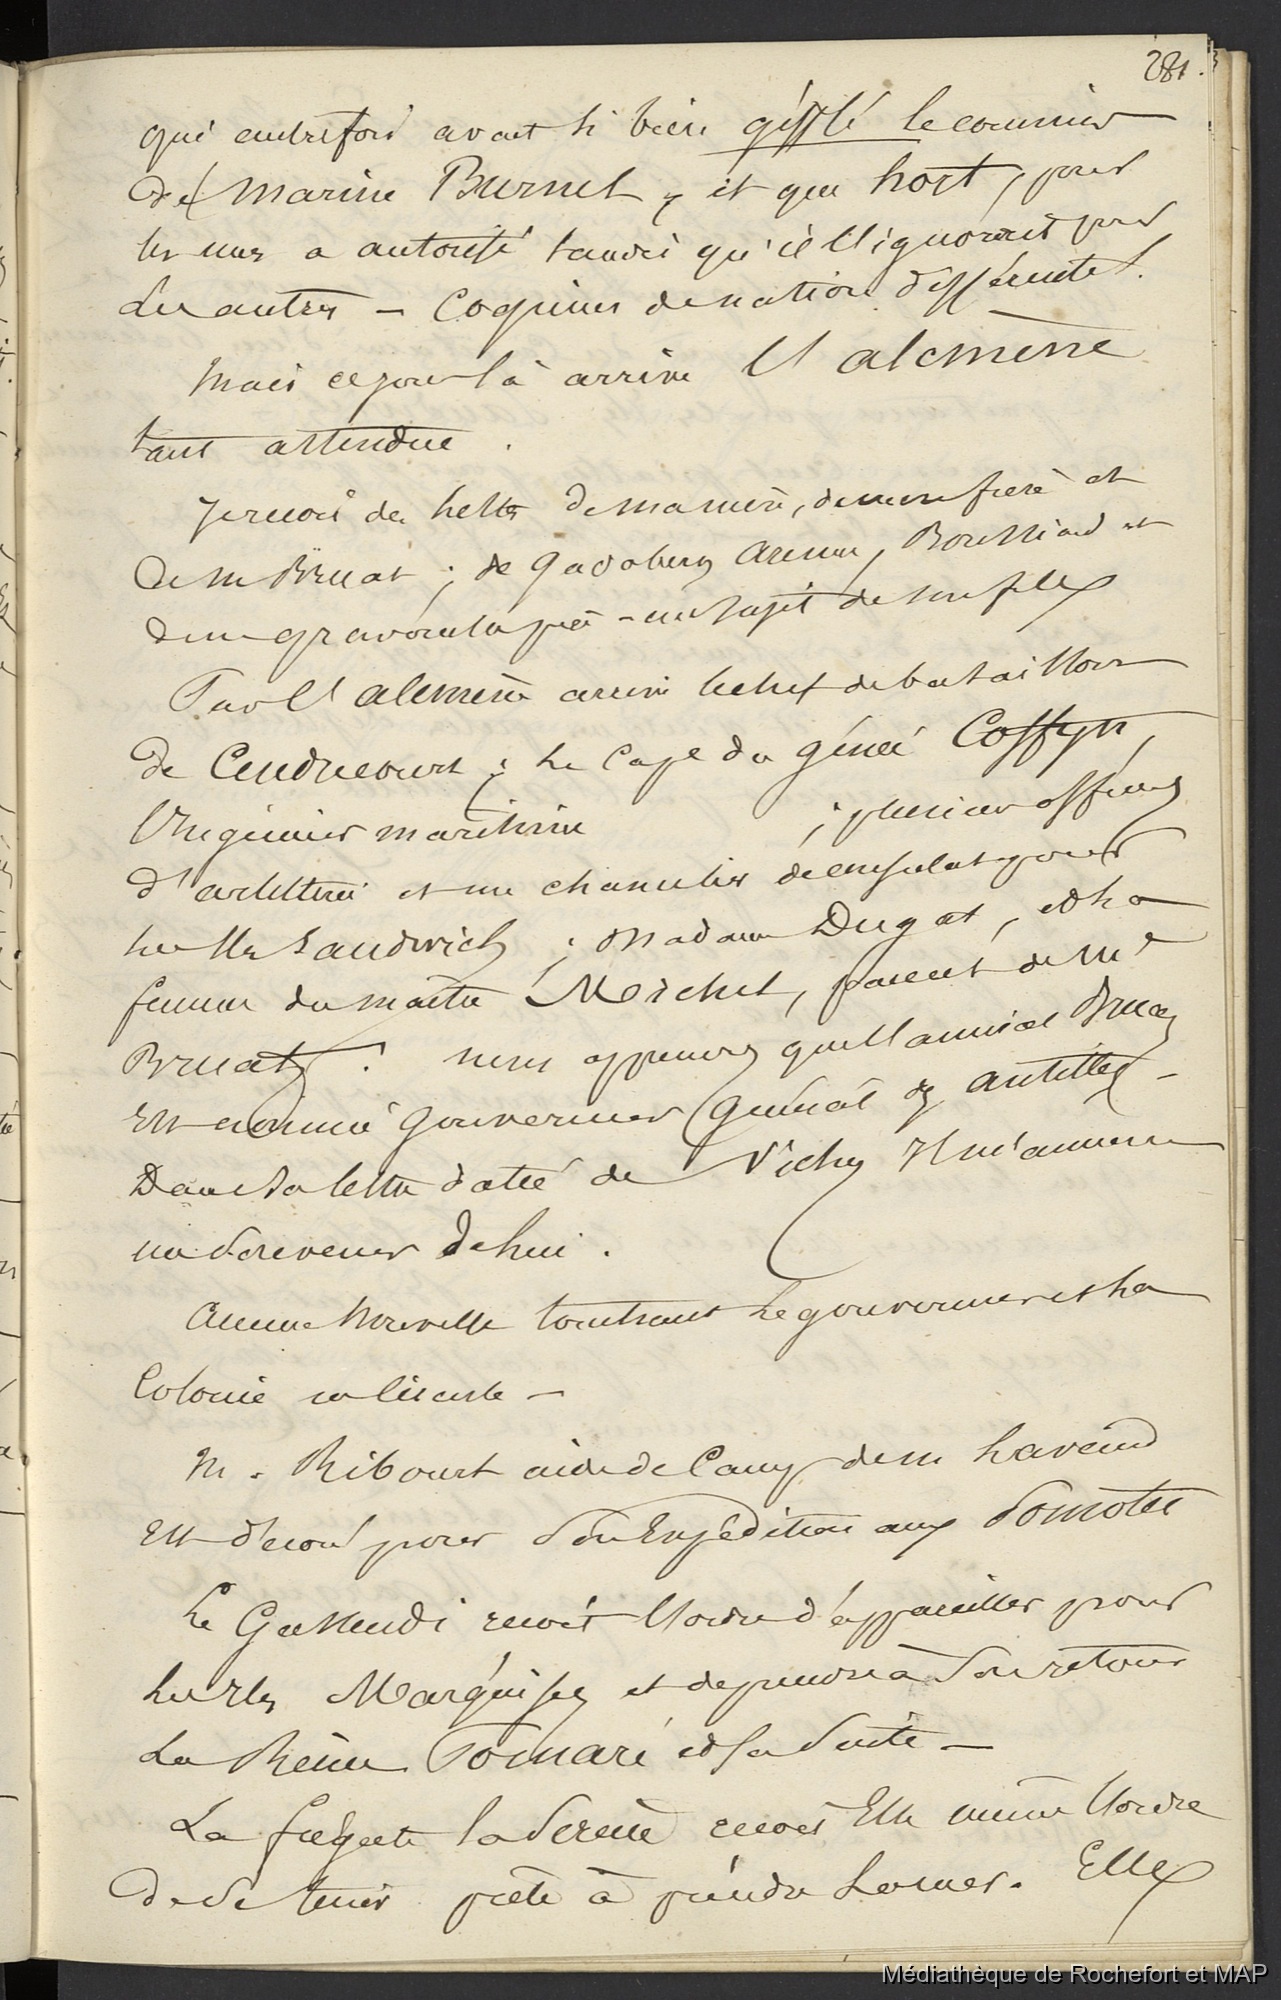 281.
qui autrefois avait si bien gifflé le commis
de marine Burnet, et que hort, pour
les uns a autorisé tandis qu'il l'ignorait pour
les autres — Coquins de nation différentes.
Mais ce jour là arrive l'alcmène
tant attendue.
Je reçois des lettres de ma mère, de mon frère et
de m Bruat ; de Gadobery Bonnard et
d'un père — au sujet de son fils
Par l'alcmène arrive le chef de bataillon
de Cendrecourt ; le cape du génie Coffyn,
l'ingénieur maritime ; plusieurs officiers
d'artillerie et un chancelier de consulat pour
les Iles Sandwich ; Madame Dugat, et la
femme du maître Michel, parent de Mr
Bruat. nous apprenons que l'amiral Bruat
est nommé gouverneur Général des antilles —
Dans sa lettre datée de Vichy il m'annonce
un souvenir de lui.
Aucune Nouvelle touchant le gouverneur et la
Colonie
M. Ribourt aide de Camp de m Lavaud
est décoré pour son Expédition aux Pomotu
Le Gassendi reçoit l'ordre d'appareiller pour
les Iles Marquises et de prendre à son retour
La Reine Pomaré et sa suite —
La frégate la Sirène reçoit Elle même l'ordre
de se tenir prête à prendre la mer. Elle
Médiathèque de Rochefort et MAP